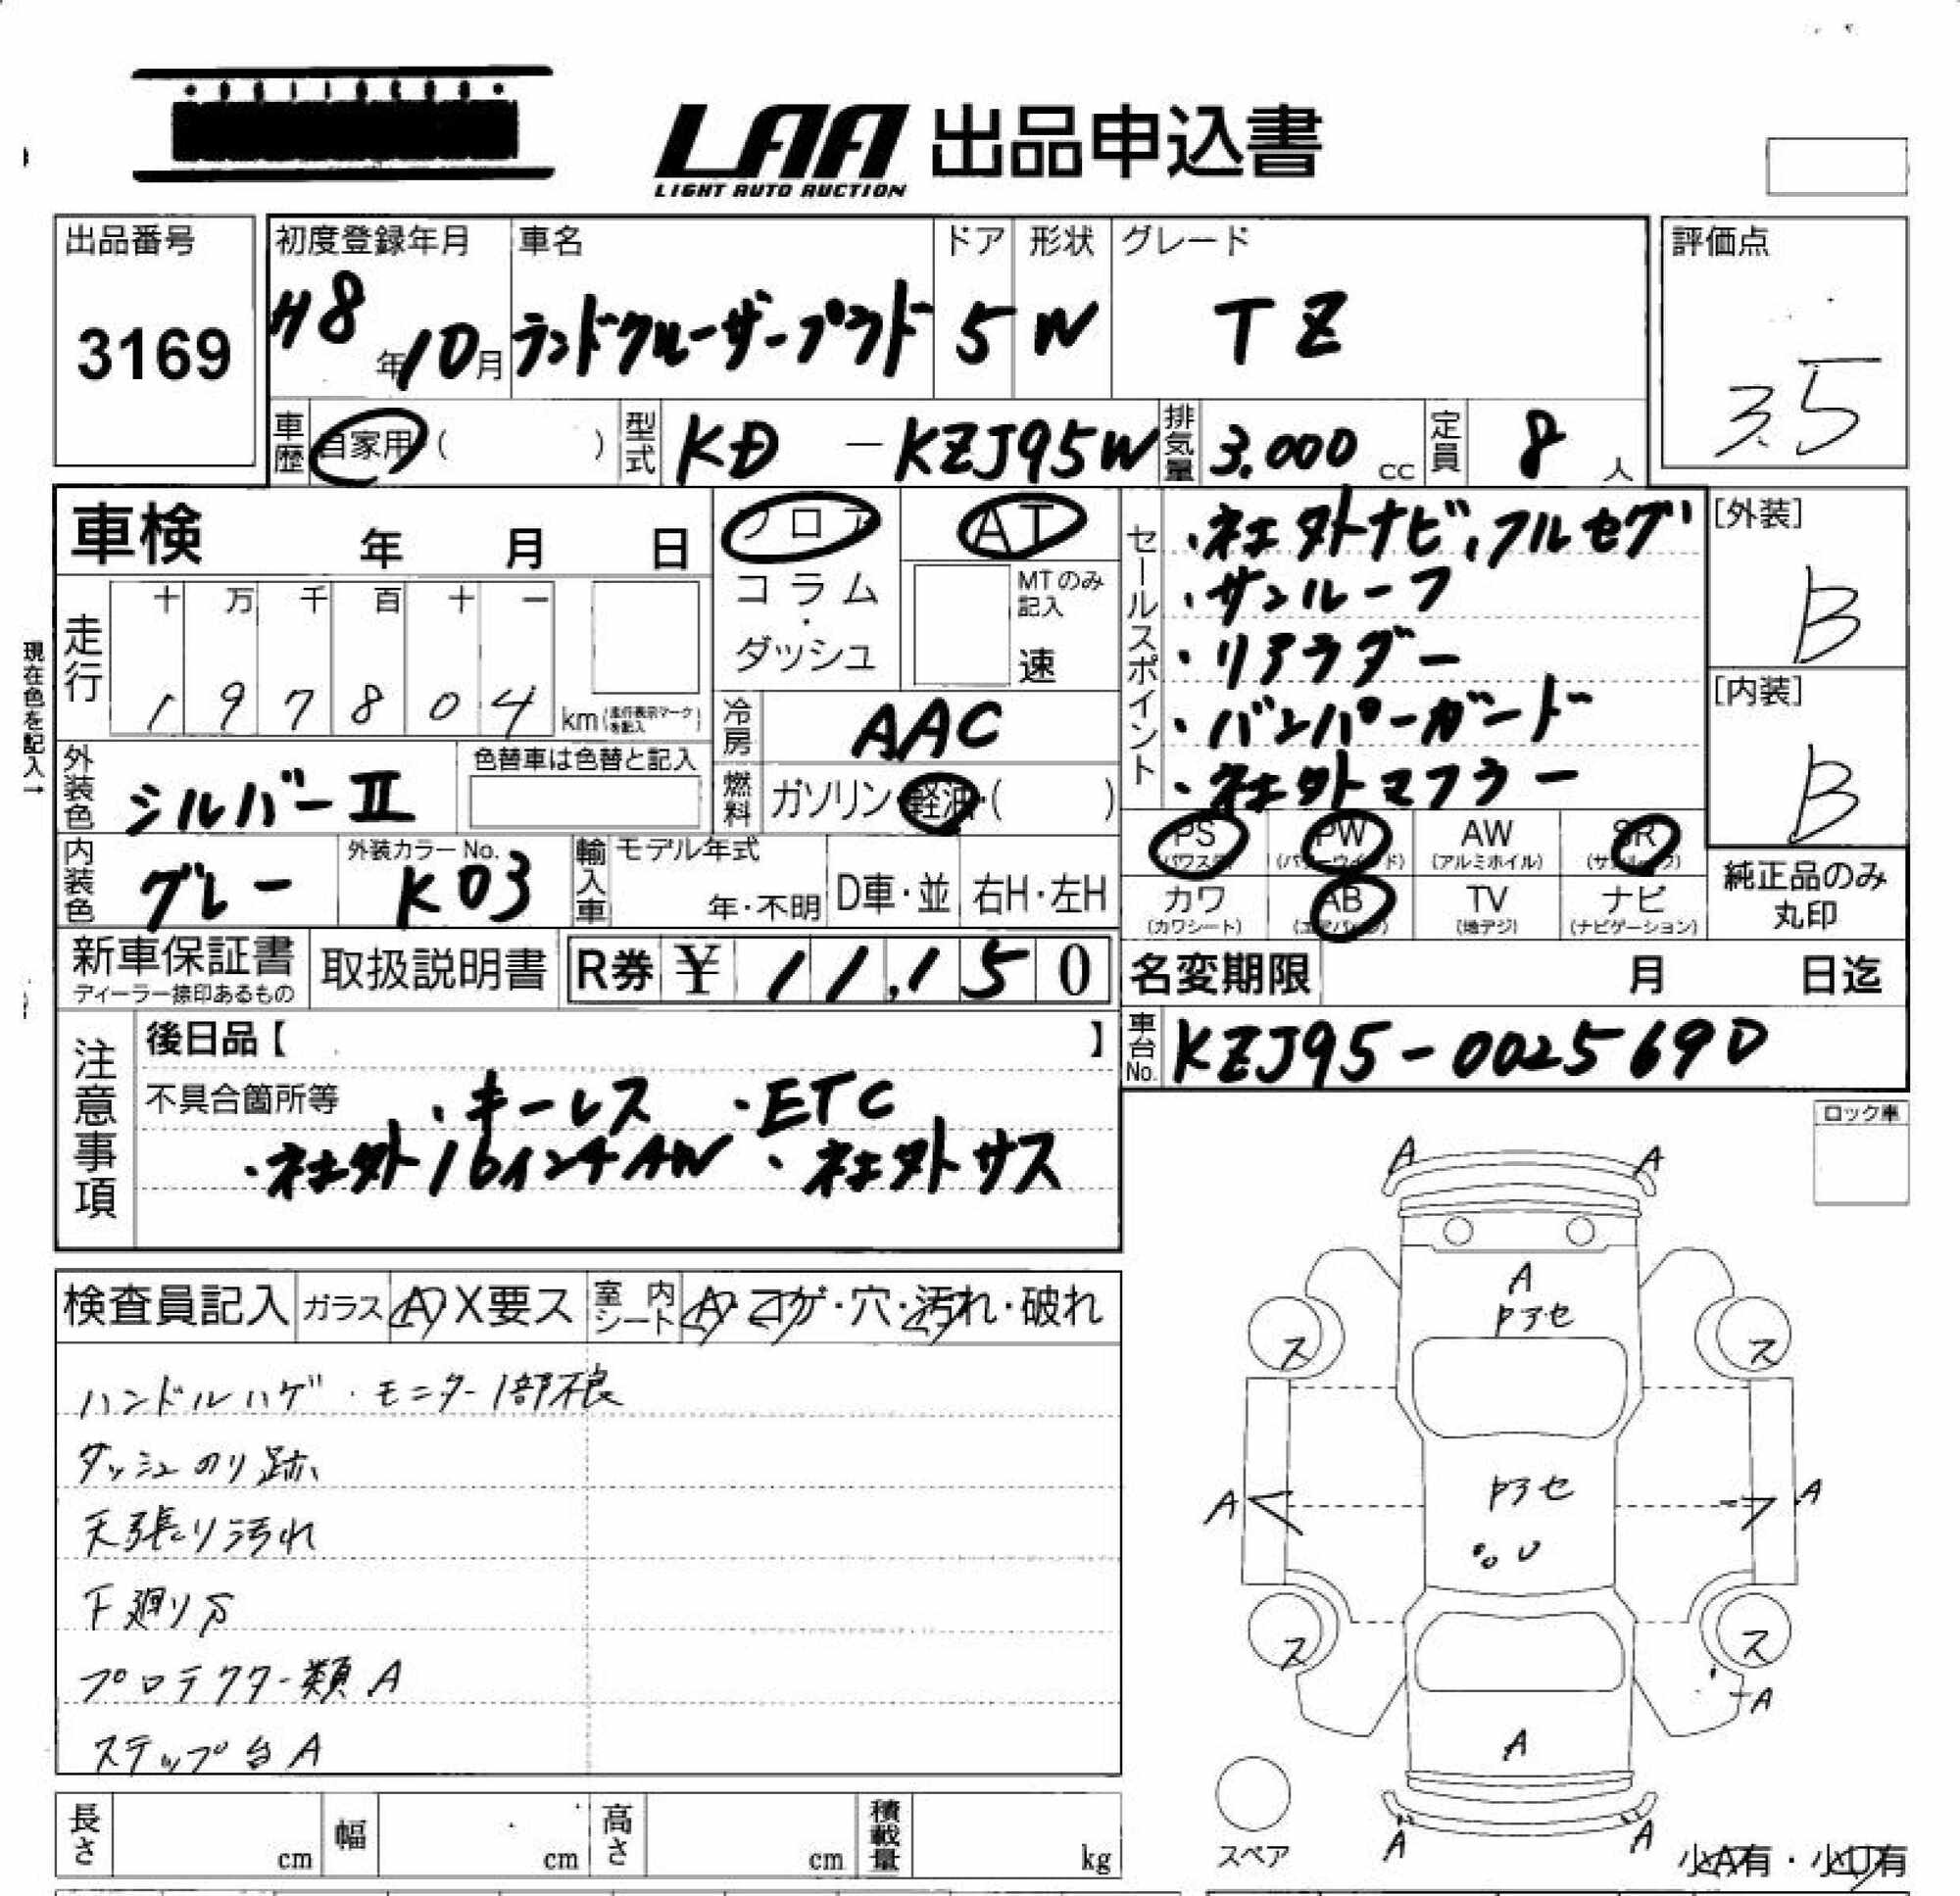 LAA 出品申込書
LIGHT AUTO AUCTION
出品番号
3169
初度登録年月
H8年10月
車名
ランドクルーザープラド
ドア
5
形状
W
グレード
TZ
評価点
3.5
車歴
自家用 ( )
型式
KD - KZJ95W
排気量
3.000 cc
定員
8 人
車検 年 月 日
フロア
コラム・ダッシュ
AT
MTのみ記入
速
セールスポイント
・社外ナビ、フルセグ
・サンルーフ
・リアラダー
・バンパーガード
・社外マフラー
[外装]
B
[内装]
B
現在色を記入→
走行
十 万 千 百 十 一
1 9 7 8 0 4 km (走行表示マークを記入)
冷房
AAC
外装色
シルバーⅡ
色替車は色替と記入
燃料
ガソリン・軽油・( )
内装色
グレー
外装カラーNo.
K03
輸入車
モデル年式
年・不明
D車・並
右H・左H
PS (パワステ)
PW (パワーウインド)
AW (アルミホイル)
SR (サンルーフ)
カワ (カワシート)
AB (エアバッグ)
TV (地デジ)
ナビ (ナビゲーション)
純正品のみ丸印
新車保証書
ディーラー捺印あるもの
取扱説明書
R券 ¥ 11,150
名変期限 月 日迄
車台No.
KZJ95-0025690
注意事項
後日品【 】
不具合箇所等
・キーレス ・ETC
・社外16インチAW ・社外サス
ロック車
検査員記入
ガラス A X要ス
室内シート A・コゲ・穴・汚れ・破れ
ハンドルハゲ・モニター1部不良
ダッシュのり跡
天張り汚れ
下廻りS
プロテクター類A
ステップ台A
A A
A
トアセ
ス ス
A A
トアセ
U
ス ス
A
A
A A
スペア
小A有・小U有
長さ cm
幅 cm
高さ cm
積載量 kg